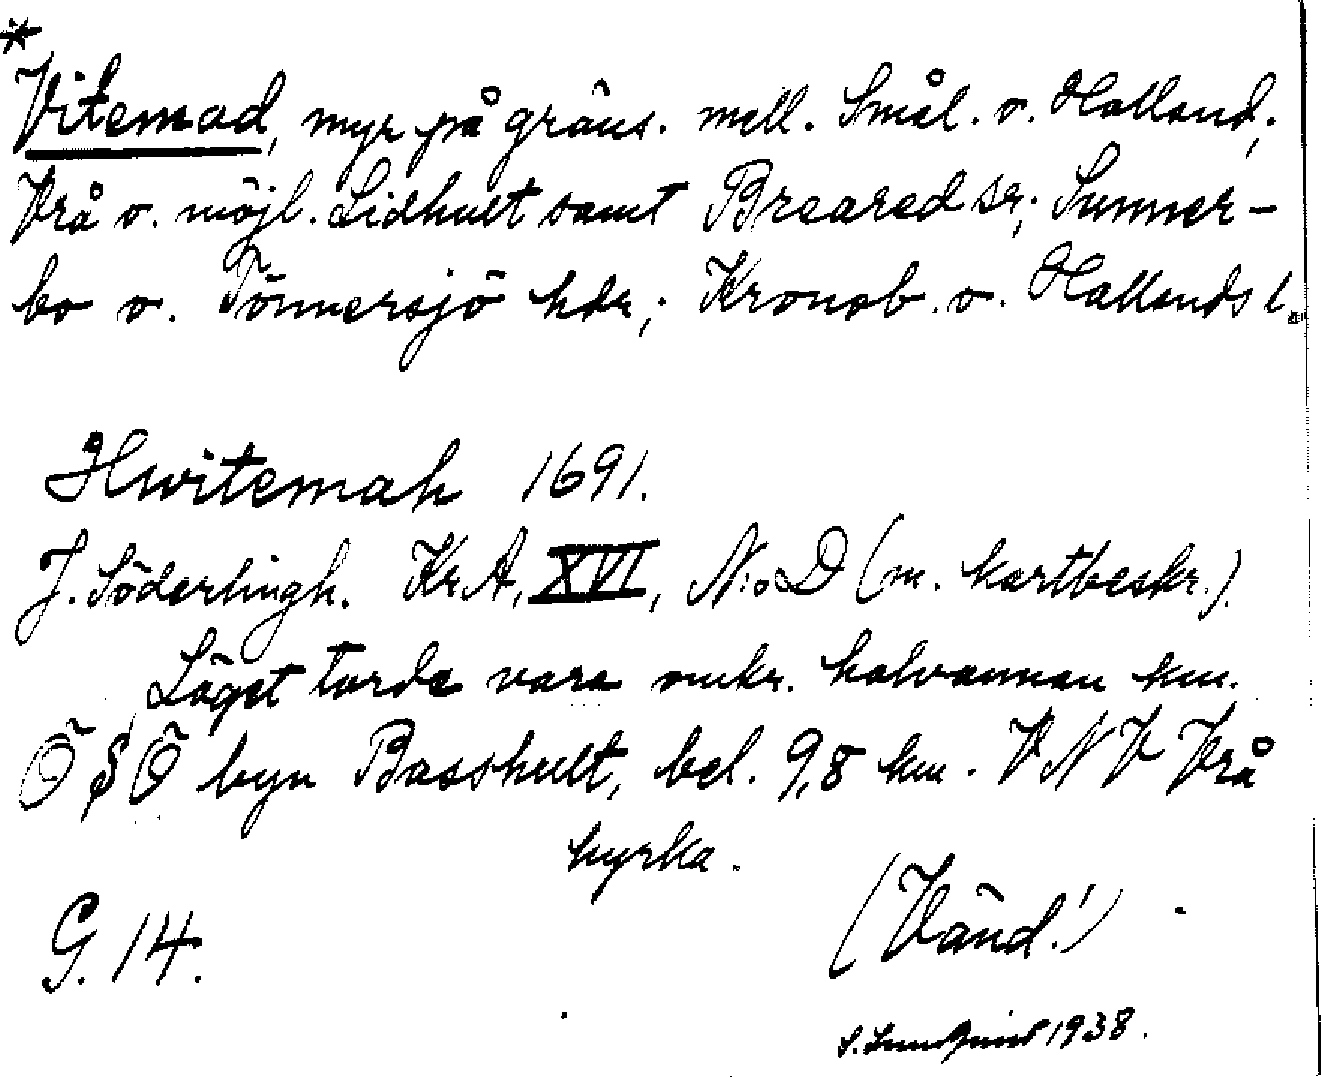 *
Vitemad, myr på gräns. mell. Smål. o. Halland;
Vrå o. möjl. Lidhult samt Breared sr; Sunner-
bo o. Tönnersjö hdr; Kronob. o. Hallands l.
Hwitemah 1691.
J. Söderlingh. Kr A, XVI, N:o D (m. kartbeskr.).
Läget torde vara omkr. halvannan km.
Ö S Ö byn Basshult, bel. 9,8 km. V N V Vrå
kyrka.
G. 14.
(Vänd!)
1938.